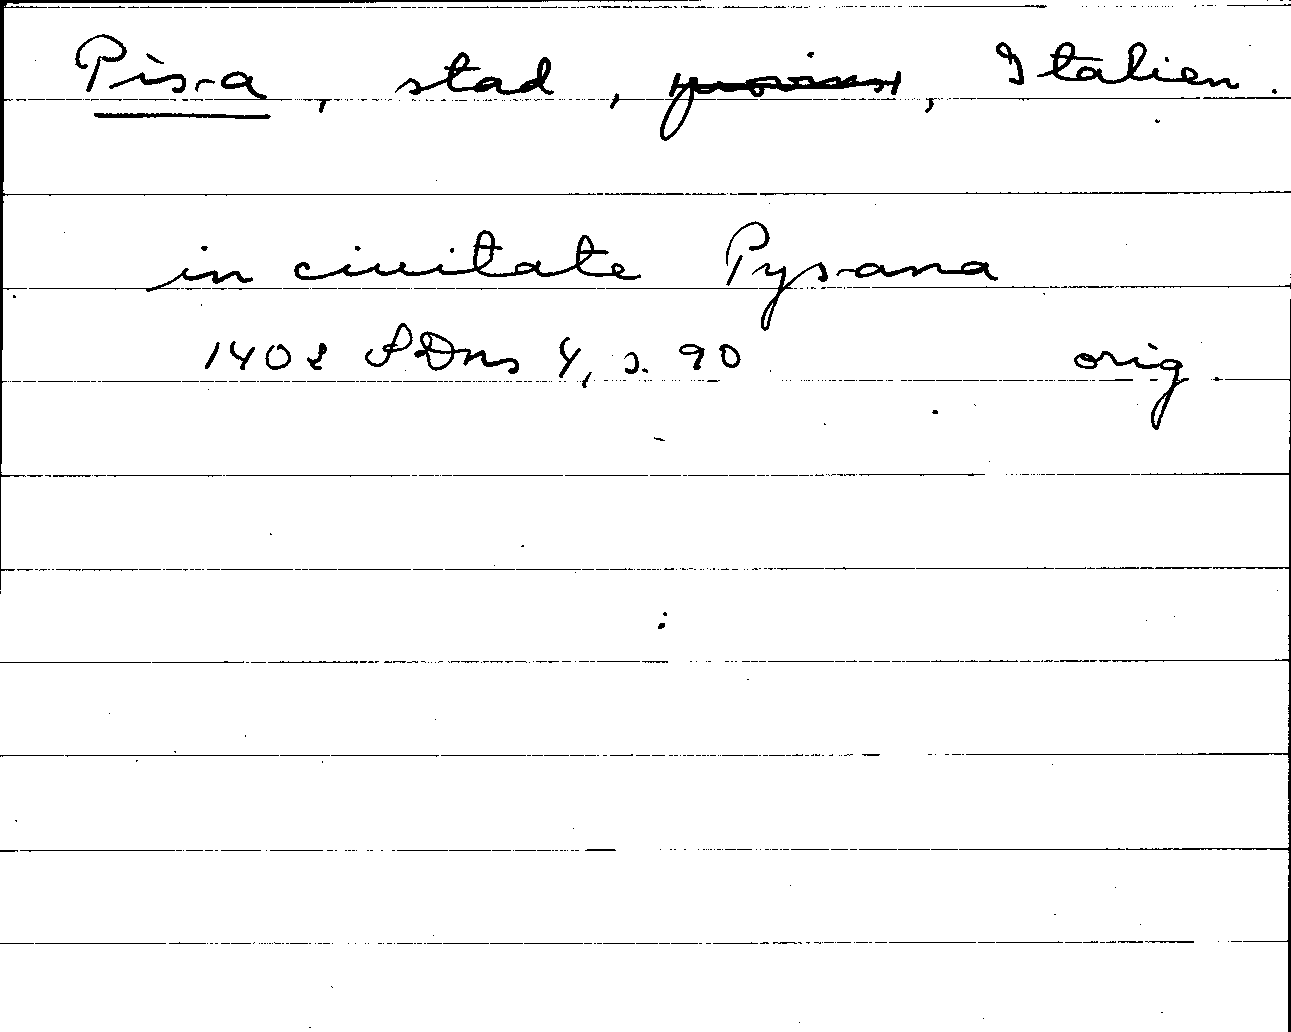 Pisa, stad, provins, Italien.
in ciuitate Pysana
1408 SDns 4, s. 90 orig.